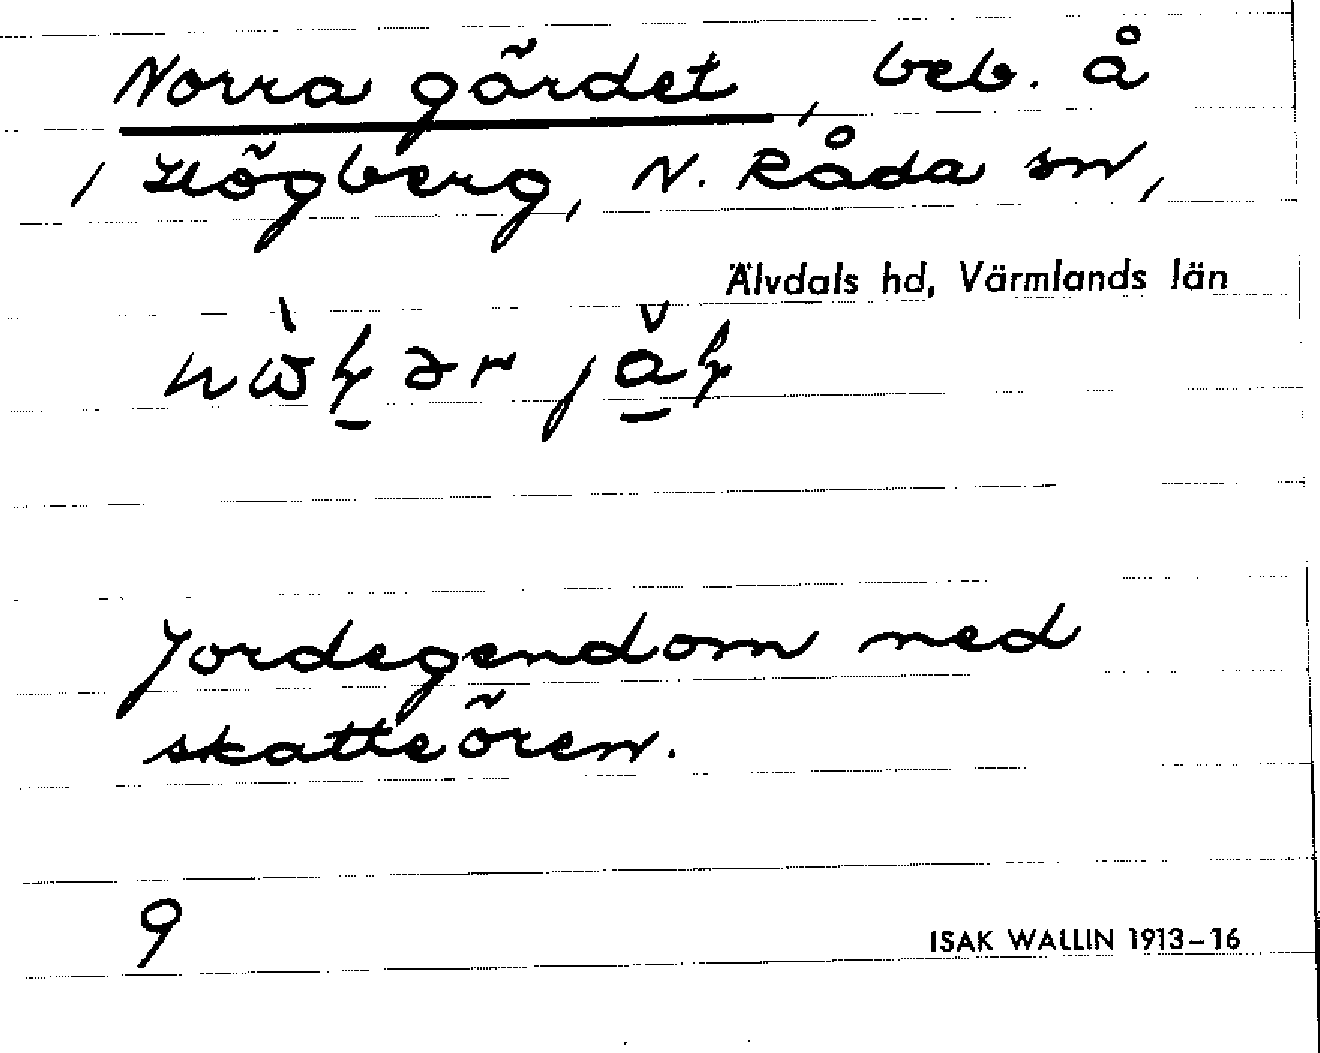 Norra gärdet, beb. å
/ Högberg, N. Råda sn,
Älvdals hd, Värmlands län
Jordegendom med
skatteören.
9
ISAK WALLIN 1913–16